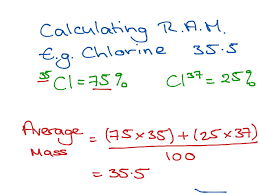 Calculating R.A.M.
E.g. Chlorine 35.5
³⁵Cl = 75% Cl³⁷ = 25%
Average Mass = (75×35) + (25×37)
100
= 35.5